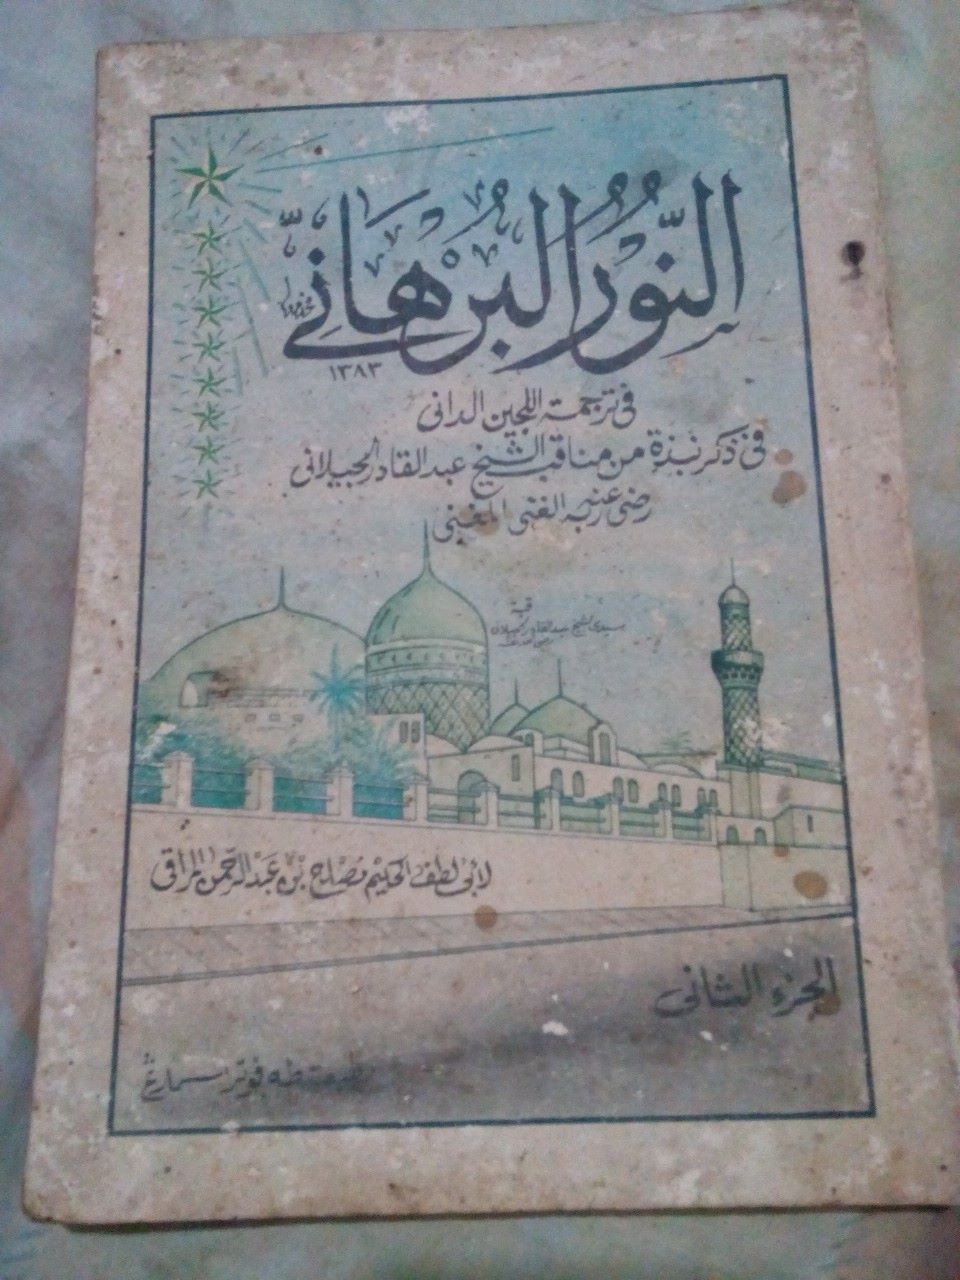 النُّورُ البُرْهَانِيّ
١٣٨٣
فى ترجمة اللجين الدانى
فى ذكر نبذة من مناقب الشيخ عبد القادر الجيلانى
رضى عنه ربه الغنى المغنى
قبة
سيدى الشيخ عبد القادر الجيلانى
لأبى لطفى الحكيم مصلح بن عبد الرحمن المراقى
الجزء الثانى
طبعت طه فوترا سمارڠ